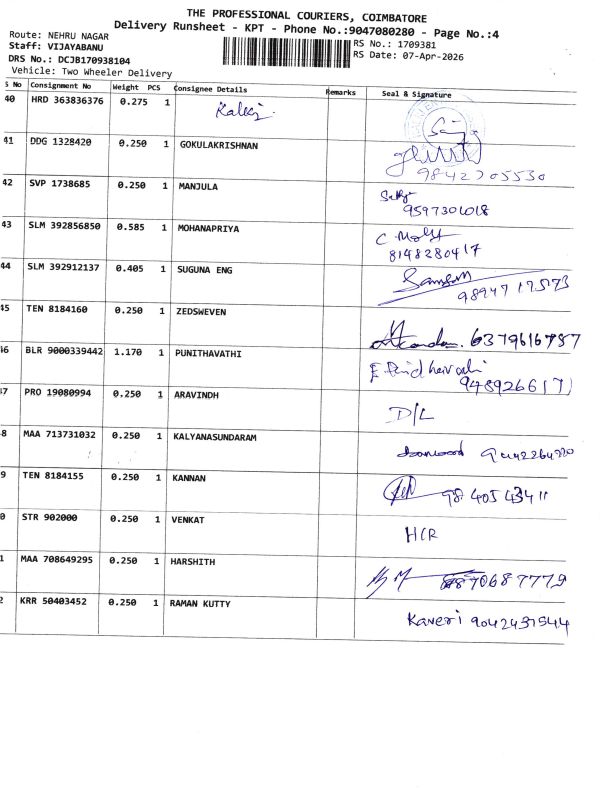 THE PROFESSIONAL COURIERS, COIMBATORE
Delivery Runsheet - KPT - Phone No.:9047080280 - Page No.:4
Route: NEHRU NAGAR
RS No.: 1709381
Staff: VIJAYABANU
RS Date: 07-Apr-2026
DRS No.: DCJB170938104
Vehicle: Two Wheeler Delivery
S No Consignment No Weight PCS Consignee Details Remarks Seal & Signature
40 HRD 363836376 0.275 1
41 DDG 1328420 0.250 1 GOKULAKRISHNAN
9842705530
42 SVP 1738685 0.250 1 MANJULA
9597301018
43 SLM 392856850 0.585 1 MOHANAPRIYA
8148280417
44 SLM 392912137 0.405 1 SUGUNA ENG
45 TEN 8184160 0.250 1 ZEDSWEVEN
6379616787
46 BLR 9000339442 1.170 1 PUNITHAVATHI
7 PRO 19080994 0.250 1 ARAVINDH
D/L
8 MAA 713731032 0.250 1 KALYANASUNDARAM
9 TEN 8184155 0.250 1 KANNAN
0 STR 902000 0.250 1 VENKAT
H/R
1 MAA 708649295 0.250 1 HARSHITH
8870687779
2 KRR 50403452 0.250 1 RAMAN KUTTY
Kaveri 9042437544